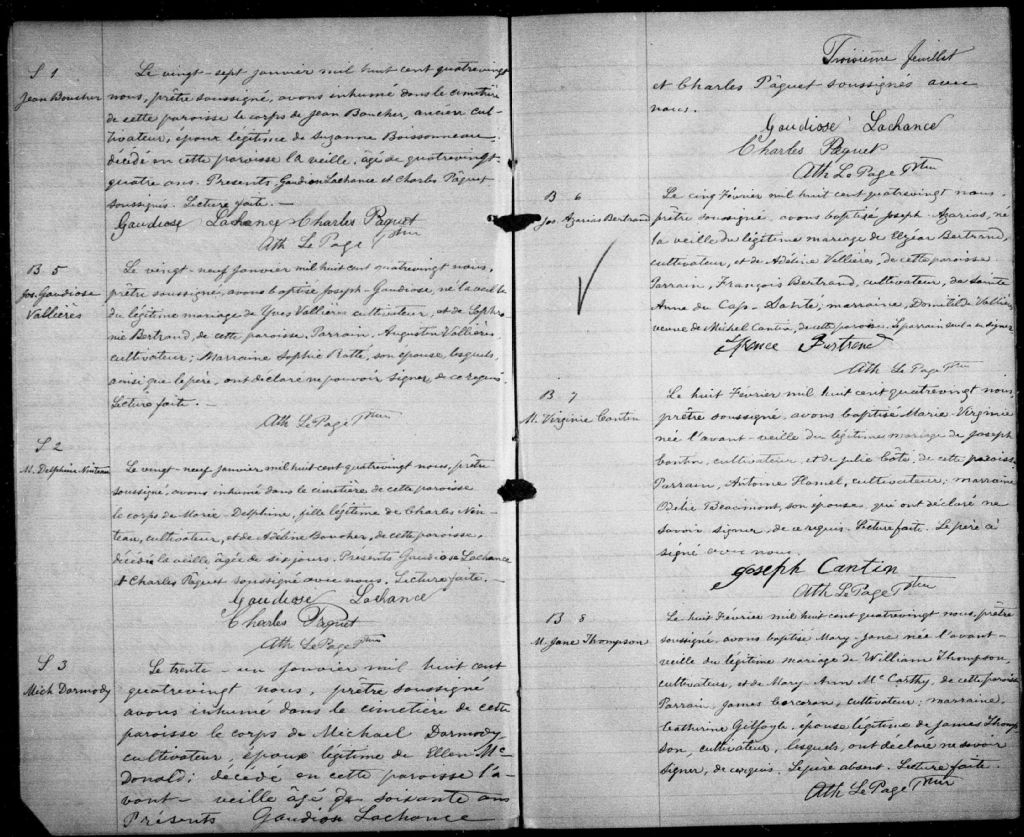 S 1
Jean Boucher
Le vingt-sept janvier mil huit cent quatrevingt
nous, prêtre soussigné, avons inhumé dans le cimetière
de cette paroisse le corps de Jean Boucher, ancien cul-
tivateur, époux légitime de Suzanne Boissonneau
décédé en cette paroisse la veille, âgé de quatrevingt-
quatre ans. Présents Gaudiose Lachance et Charles Pâquet
soussignés. Lecture faite. —
Gaudiose Lachance Charles Paquet
Ath Le Page Ptre
B. 5
Jos. Gaudiose
Vallières
Le vingt-neuf janvier mil huit cent quatrevingt nous,
prêtre soussigné, avons baptisé Joseph-Gaudiose, né la veille
du légitime mariage de Yves Vallières cultivateur, et de Sophro-
nie Bertrand, de cette paroisse, Parrain, Augustin Vallières,
cultivateur; Marraine Sophie Ratté, son épouse, lesquels,
ainsi que le père, ont déclaré ne pouvoir signer, de ce requis.
Lecture faite. —
Ath Le Page Ptre
S 2
M. Delphine Ninteau
Le vingt-neuf janvier mil huit cent quatrevingt nous, prêtre
soussigné, avons inhumé dans le cimetière de cette paroisse
le corps de Marie-Delphine, fille légitime de Charles Nin-
teau, cultivateur, et de Adéline Boucher, de cette paroisse,
décédée la veille âgée de six jours. Présents Gaudiose Lachance
et Charles Pâquet soussigné avec nous. Lecture faite. —
Gaudiose Lachance
Charles Paquet
Ath Le Page Ptre
S 3
Mich Darmody
Le trente-un janvier mil huit cent
quatrevingt nous, prêtre soussigné
avons inhumé dans le cimetière de cette
paroisse le corps de Michael Darmody,
cultivateur, époux légitime de Ellen Mc
Donald; décédé en cette paroisse l'a-
vant-veille âgé de soixante ans
Présents Gaudiose Lachance
Troisième feuillet
et Charles Pâquet soussignés avec
nous.
Gaudiose Lachance
Charles Paquet
Ath Le Page Ptre
B 6
Jos. Azarias Bertrand
Le cinq Février mil huit cent quatrevingt nous
prêtre soussigné, avons baptisé Joseph-Azarias, né
la veille du légitime mariage de Elzéar Bertrand,
cultivateur, et de Adéline Vallières, de cette paroisse
Parrain, François Bertrand, cultivateur, de Sainte
Anne du Cap-Santé; marraine, Domitilde Vallières,
veuve de Michel Cantin, de cette paroisse. Le parrain seul a su signer
Bertrand
Ath Le Page Ptre
B 7
M. Virginie Cantin
Le huit Février mil huit cent quatrevingt nous
prêtre soussigné, avons baptisé Marie Virginie
née l'avant-veille du légitime mariage de Joseph
Cantin, cultivateur, et de Julie Côté, de cette paroisse
Parrain, Antoine Hamel, cultivateur; marraine
Odélie Beaumont, son épouse, qui ont déclaré ne
savoir signer, de ce requis. Lecture faite. Le père a
signé avec nous.
Joseph Cantin
Ath Le Page Ptre
B 8
M. Jane Thompson
Le huit Février mil huit cent quatrevingt nous, prêtre
soussigné, avons baptisé Mary-Jane née l'avant-
veille du légitime mariage de William Thompson,
cultivateur, et de Mary Ann McCarthy, de cette paroisse
Parrain, James Corcoran, cultivateur; marraine,
Catherine Gilfoyle, épouse légitime de James Thomp-
son, cultivateur, lesquels, ont déclaré ne savoir
signer, de ce requis. Le père absent. Lecture faite.
Ath Le Page Ptre